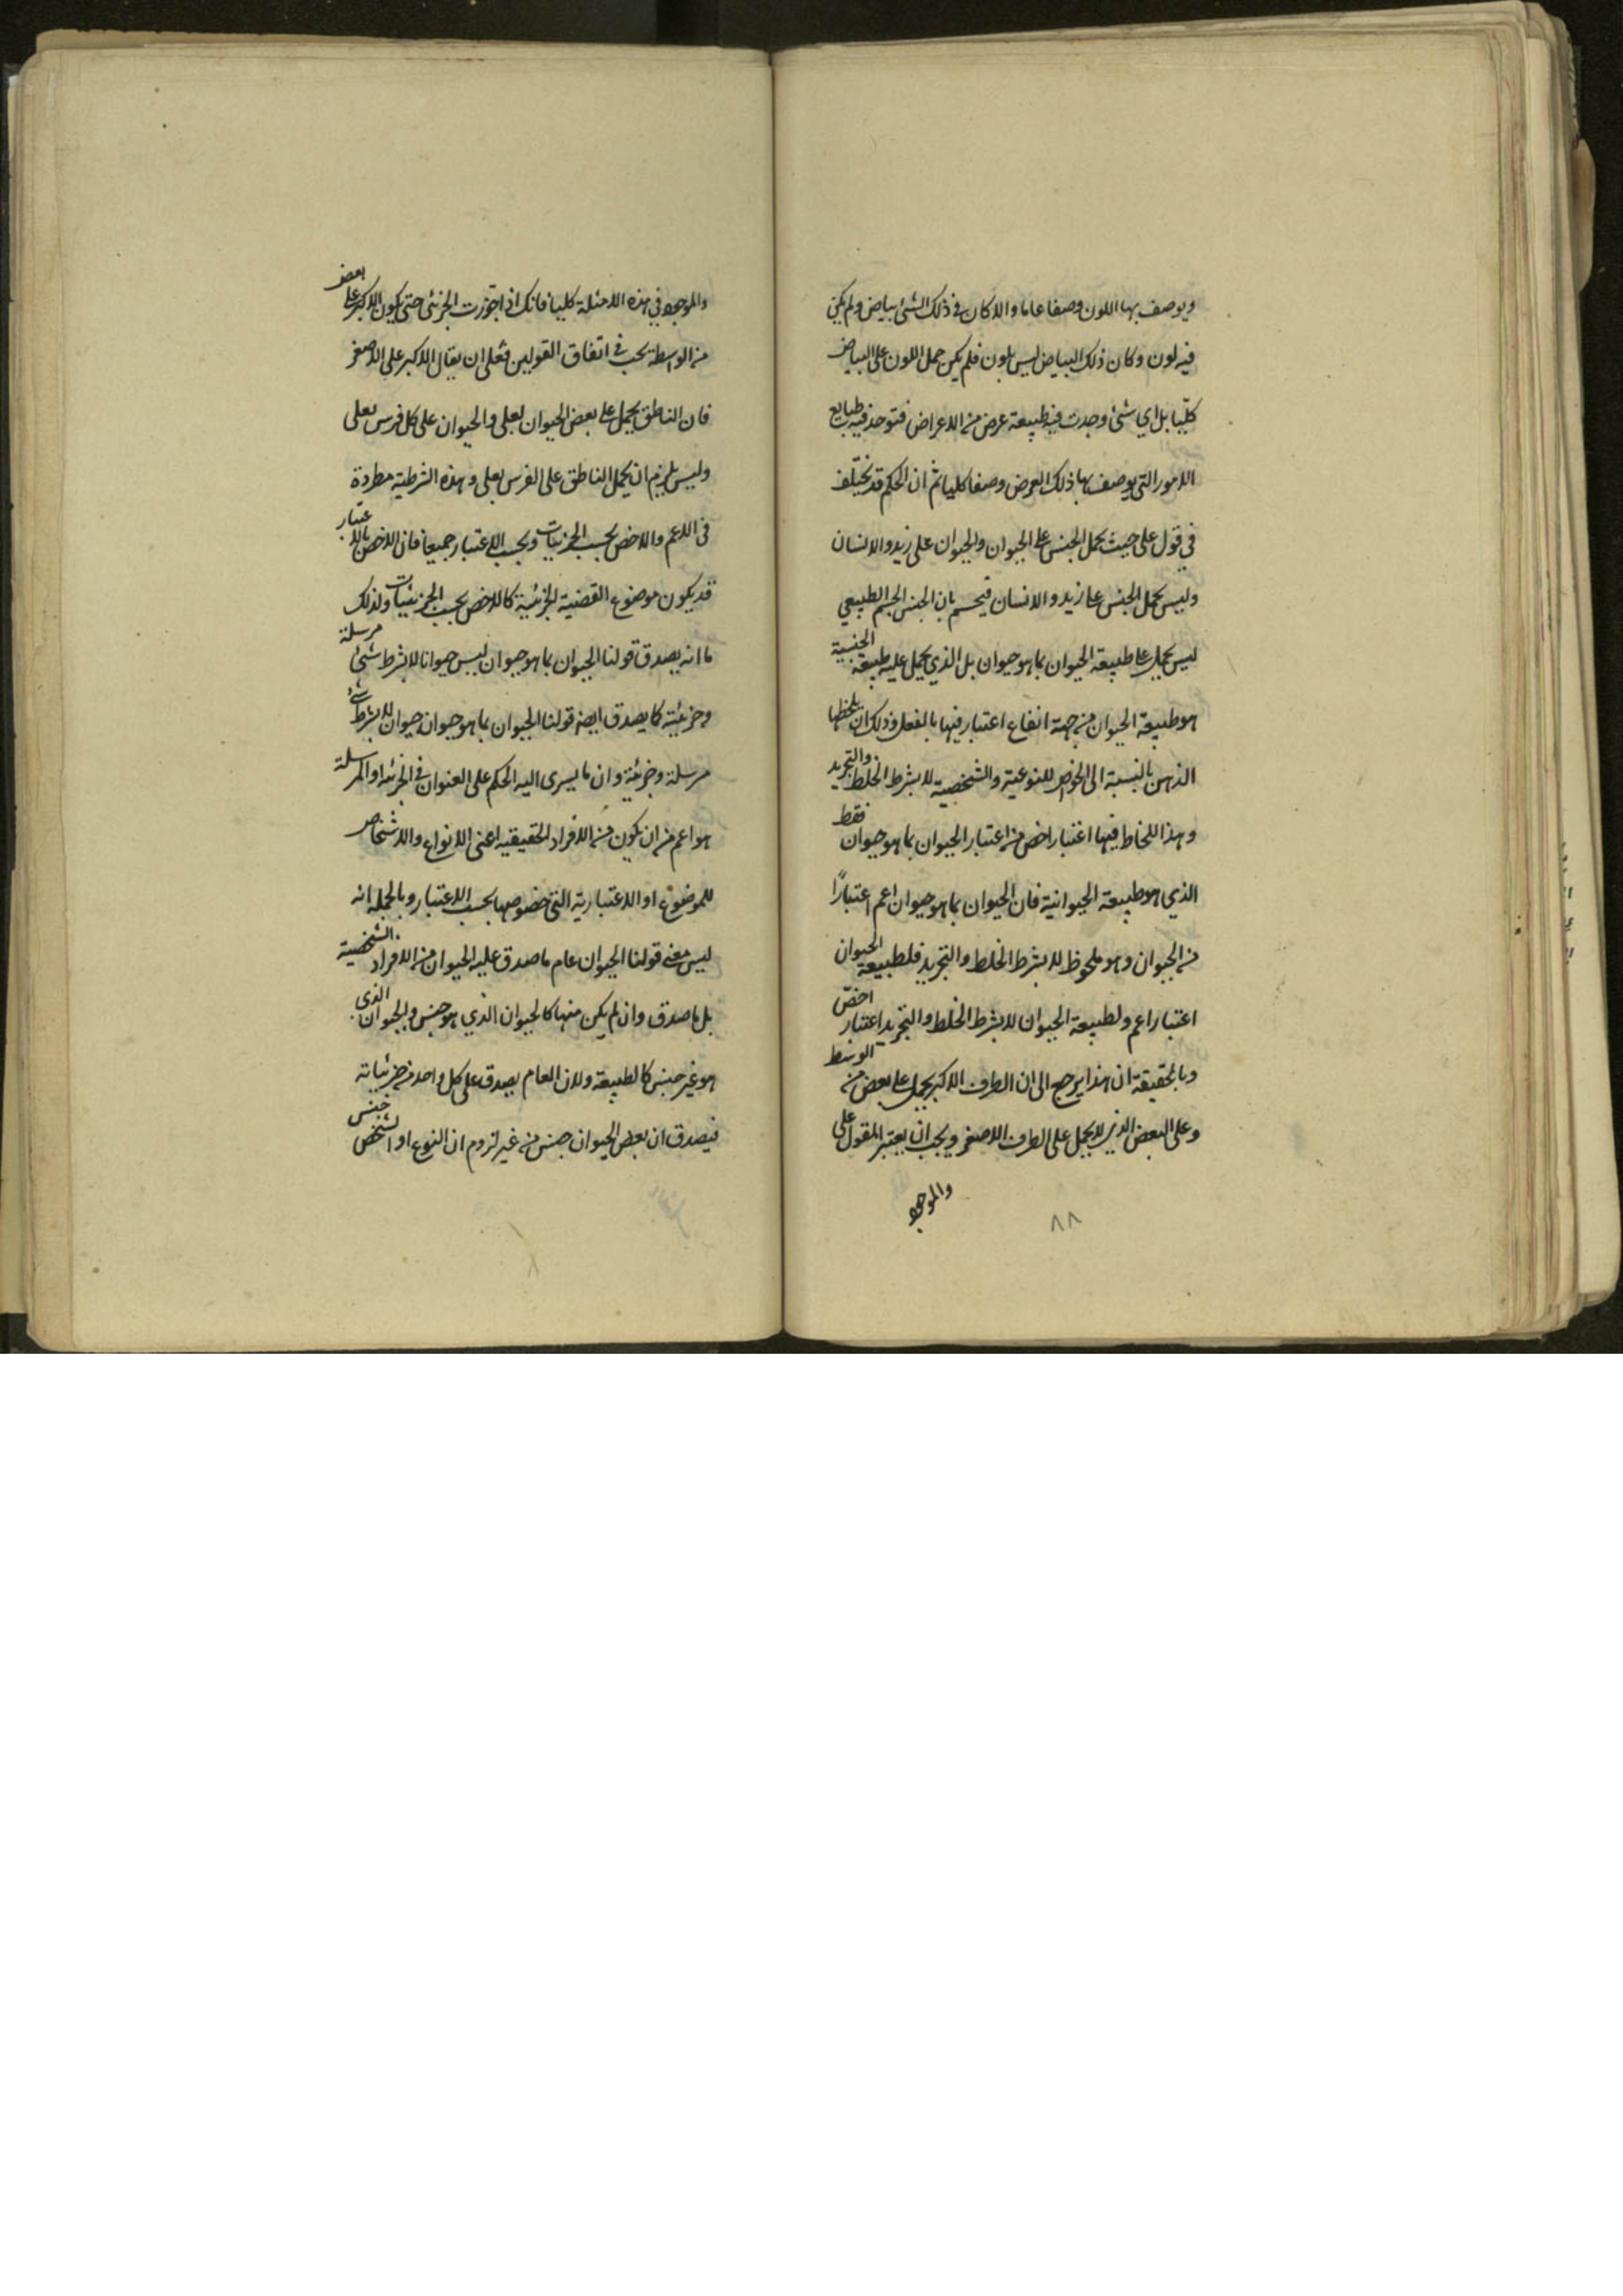 ويوصف بها اللون وصفا عاما والا كان في ذلك الشئ بياض ولم يكن
فيه لون وكان ذلك البياض ليس بلون فلم يكن حمل اللون على البياض
كليّا بل اي شئ وجدت فيه طبيعة عرض من الاعراض فتوجد فيه طبايع
الامور التي يوصف بها ذلك العرض وصفا كليا ثم ان الحكم قد يختلف
في قول على حيث يحمل الجنس على الحيوان والحيوان على زيد والانسان
وليس يحمل الجنس على زيد والانسان بان الجنس الجسم الطبيعي
ليس يحمل على طبيعة الحيوان بما هو حيوان بل الذي يحمل عليه طبيعة الجنسية
هو طبيعة الحيوان من جهة اعتبار فيها بالفعل وذلك ان يلحظها
الذهن بالنسبة الى الخواص النوعية والشخصية لا بشرط الخلط والتجريد
وهذا اللحاظ فيها اعتبار اخص من اعتبار الحيوان بما هو حيوان فقط
الذي هو طبيعة الحيوانية فان الحيوان بما هو حيوان اعم اعتبارًا
من الحيوان وهو ملحوظ لا بشرط الخلط والتجريد فلطبيعة الحيوان
اعتبار اعم ولطبيعة الحيوان لا بشرط الخلط والتجريد اعتبار اخصّ
وبالحقيقة ان هذا يرجع الى ان الطرف الاكبر يحمل على بعض من الوسط
وعلى البعض الذي لا يحمل على الطرف الاصغر ويجب ان يعتبر المقول على
والموجود
٨٨
والموجود في هذه الامثلة كليا فانك اذا جوزت الجزئي حتى يكون الاكبر على بعض
من الواسطة يجب في اتفاق القولين بعلى ان يقال الاكبر على الاصغر
فان الناطق يحمل على بعض الحيوان بعلى والحيوان على كل فرس بعلى
وليس يلزم ان يحمل الناطق على الفرس بعلى وهذه الشرطية مطردة
في الاعم والاخص بحسب الجزئيات وبحسب الاعتبار جميعا فان الاخص بالاعتبار
قد يكون موضوع القضية الجزئية كالاخص بحسب الجزئيات ولذلك
ما انه يصدق قولنا الحيوان بما هو حيوان ليس حيوانا لا بشرط شئ مرسلة
وجزئية كما يصدق ايضا قولنا الحيوان بما هو حيوان حيوان لا بشرط شئ
مرسلة وجزئية وان ما يسرى اليه الحكم على العنوان في الجزئية او المرسلة
هو اعم من ان يكون من الافراد الحقيقية اعني الانواع والاشخاص
للموضوع او الاعتبارية التي خصوصها بحسب الاعتبار وبالجملة انه
ليس معنى قولنا الحيوان عام ما صدق عليه الحيوان من الافراد الشخصية
بل ما صدق وان لم يكن منها كالحيوان الذي هو جنس والحيوان الذي
هو غير جنس كالطبيعة ولان العام يصدق على كل واحد من جزئياته
فيصدق ان بعض الحيوان جنس من غير لزوم ان النوع او الشخص جنس